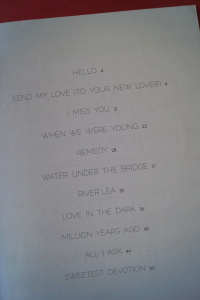 HELLO 4
SEND MY LOVE (TO YOUR NEW LOVER) 8
I MISS YOU 12
WHEN WE WERE YOUNG 22
REMEDY 28
WATER UNDER THE BRIDGE
RIVER LEA
LOVE IN THE DARK
MILLION YEARS AGO 40
ALL I ASK 44
SWEETEST DEVOTION 50